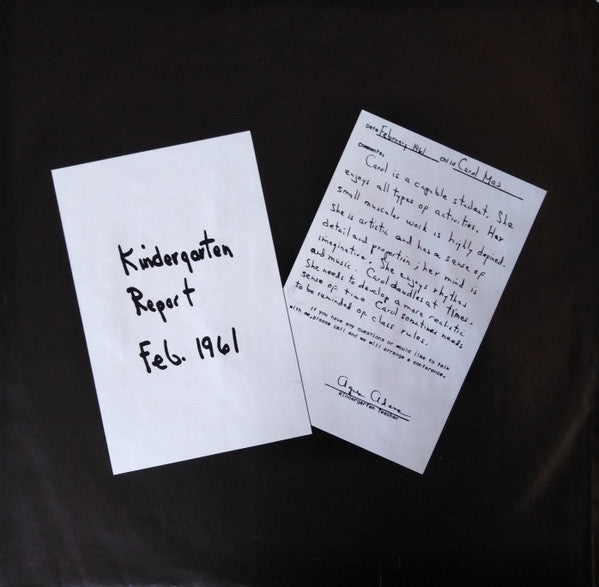 Kindergarten
Report
Feb. 1961
DATE February 1961 CHILD Carol Mas
COMMENTS:
Carol is a capable student. She
enjoys all types of activities. Her
small muscular work is highly defined.
She is artistic and has a sense of
detail and proportion; her mind is
imaginative. She enjoys rhythms
and music. Carol dawdles at times.
She needs to develop a more realistic
sense of time. Carol sometimes needs
to be reminded of class rules.
If you have any questions or would like to talk
with me, please call and we will arrange a conference.
Kindergarten Teacher